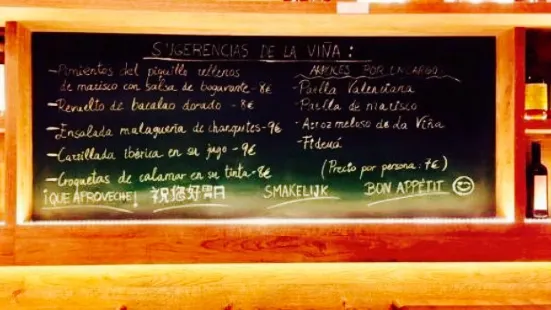 SUGERENCIAS DE LA VIÑA:
-Pimientos del piquillo rellenos
de marisco con salsa de bogavante-8€
-Revuelto de bacalao dorado - 8€
-Ensalada malagueña de chanquetes-9€
-Carrillada ibérica en su jugo - 9€
-Croquetas de calamar en su tinta-8€
ARROCES POR ENCARGO
-Paella Valenciana
-Paella de marisco
-Arroz meloso de La Viña
-Fideuá
(Precio por persona: 7€)
¡QUE APROVECHE! 祝您好胃口 SMAKELIJK BON APPÉTIT